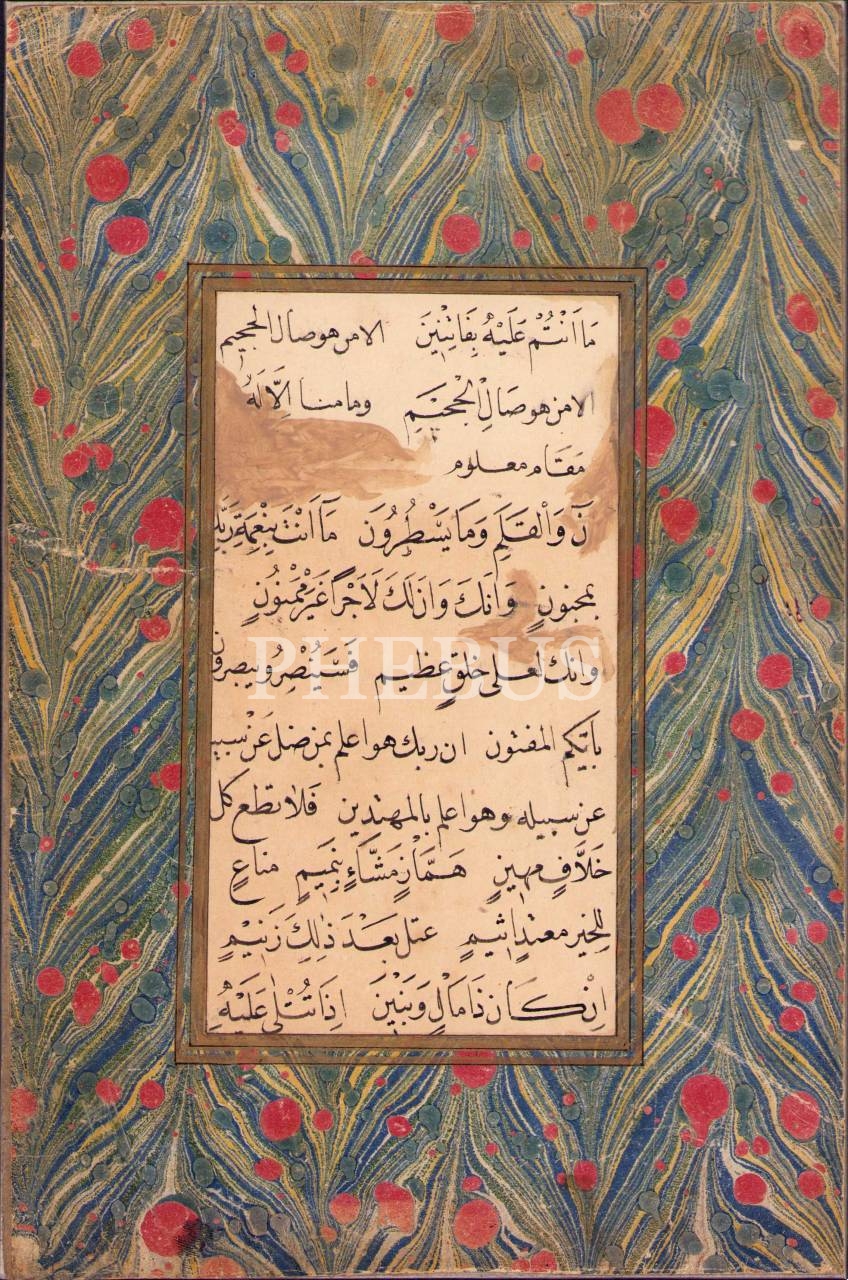 مَا اَنْتُمْ عَلَيْهِ بِفَاتِنِينَ الامن هو صال الجحيم
الامن هو صَالِ الْجَحِيمِ ومامنا اِلَّا لَهُ
مَقَام معلوم
نَ وَالْقَلَمِ وَمَا يَسْطُرُونَ مَا اَنْتَ بِنِعْمَةِ رَبِّكَ
بمجنونٍ وَانكَ وَانَ لَكَ لَاَجْرًا غَيْرَ مَمْنُونٍ
وانك لعلى خُلُقٍ عظيم فَسَتُبْصِرُ ويبصرون
PHEBUS
بِاَيِّكُمُ المفتون ان ربك هو اعلم بمن ضل عَنْ سبيله
عن سبيله وهو اعلم بالمهتدين فَلَا تطع كل
حَلَّافٍ مَهِينٍ هَمَّازٍ مَشَّاءٍ بِنَمِيمٍ مناعٍ
لِلخير معتدٍ اثيمٍ عتل بَعْدَ ذٰلِكَ زَنِيمٍ
اِنْ كان ذَا مَالٍ وَبَنِينَ اِذَا تُتْلٰى عَلَيْهِ